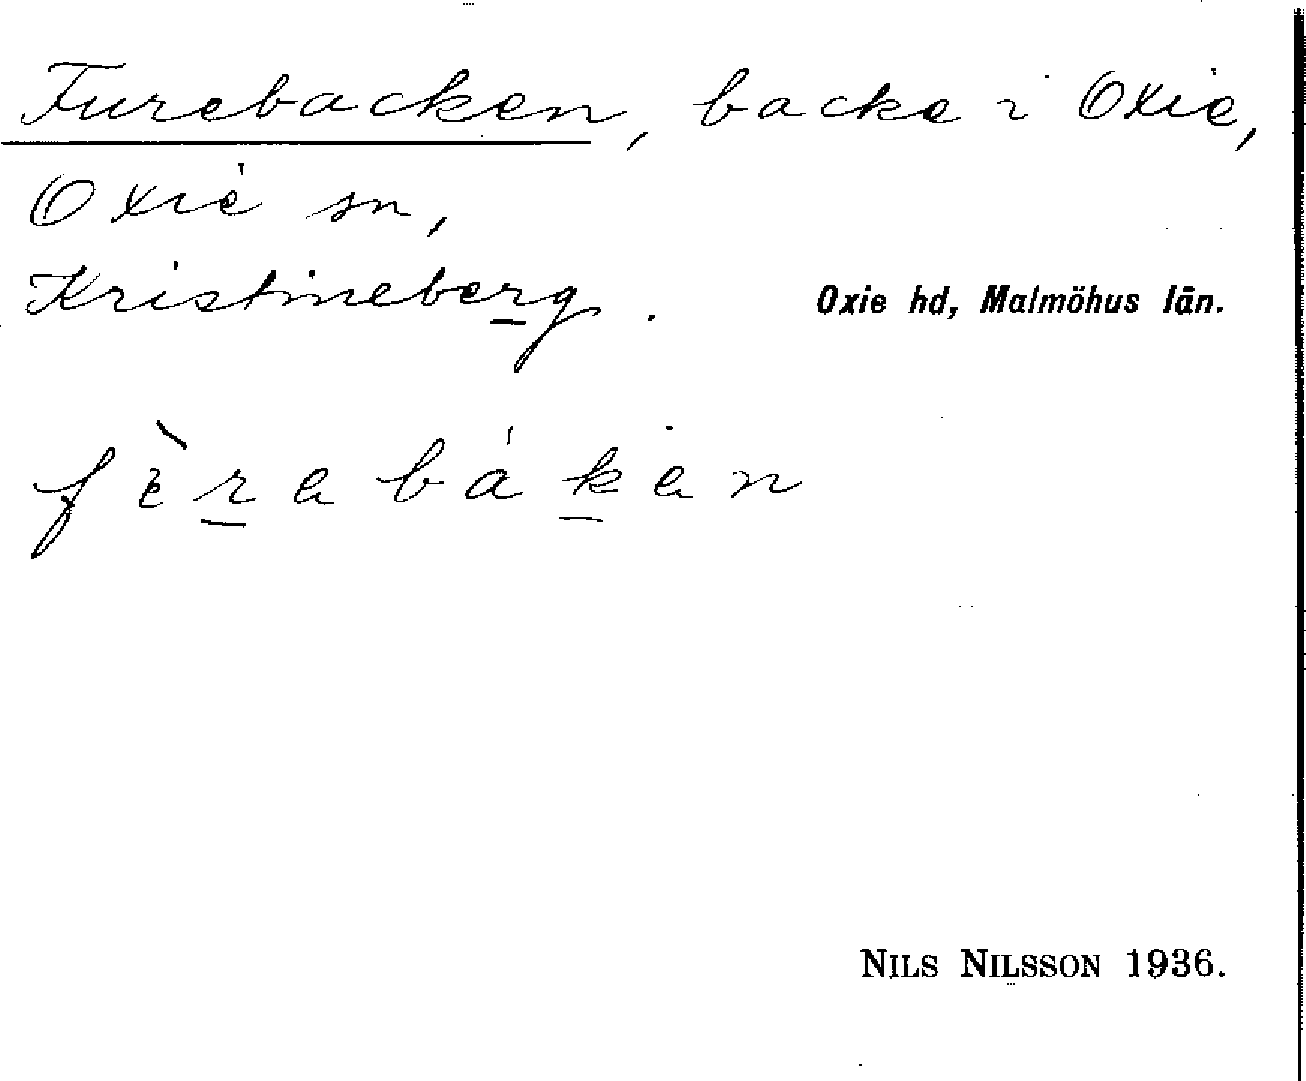 Furebacken, backe i Oxie,
Oxie sn,
Kristineberg.
Oxie hd, Malmöhus län.
fèrabákan
NILS NILSSON 1936.